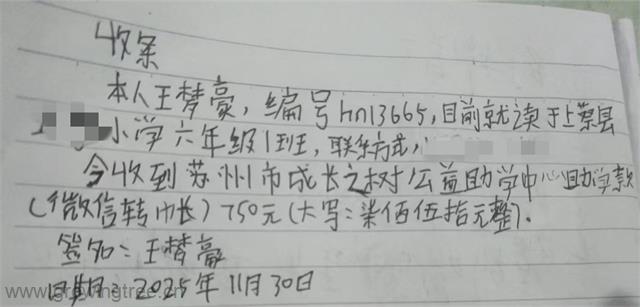 收条
本人王梦豪，编号hn13665，目前就读于上蔡县
小学六年级1班，联系方式，
今收到苏州市成长之树公益助学中心助学款
（微信转帐）750元（大写：柒佰伍拾元整）．
签名：王梦豪
日期：2025年11月30日
www.growingtree.cn